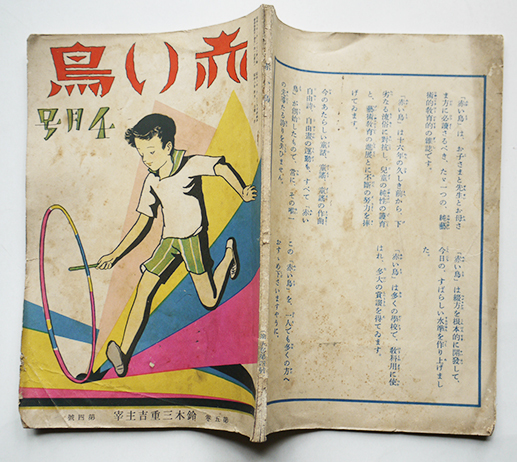 赤い鳥
五月号
第五巻 鈴木三重吉主宰 第四號
「赤い鳥」は、お子さまと先生とお母さ
ま方に必讀さるべき、たヾ一つの、純藝
術的敎育的の雜誌です。
「赤い鳥」は十六年の久しき前から、下
劣なる俗的に對抗し、兒童の純性の護育
と、藝術敎育の進展とに不斷の努力を捧
げてゐます。
今のあたらしい童話、童謠、童謠の作曲
自由詩、自由畫の運動も、すべて「赤い
鳥」が開始したもので、常に、その唯一
の
「赤い鳥」は綴方を根本的に開發して、
今日の、すばらしい水準を作り上げまし
た。
「赤い鳥」は多くの學校で、敎科用に使
はれ、多大の賞讃を得てゐます。
この「赤い鳥」を、一人でも多くの方へ
おすゝめ下さいますやうに。